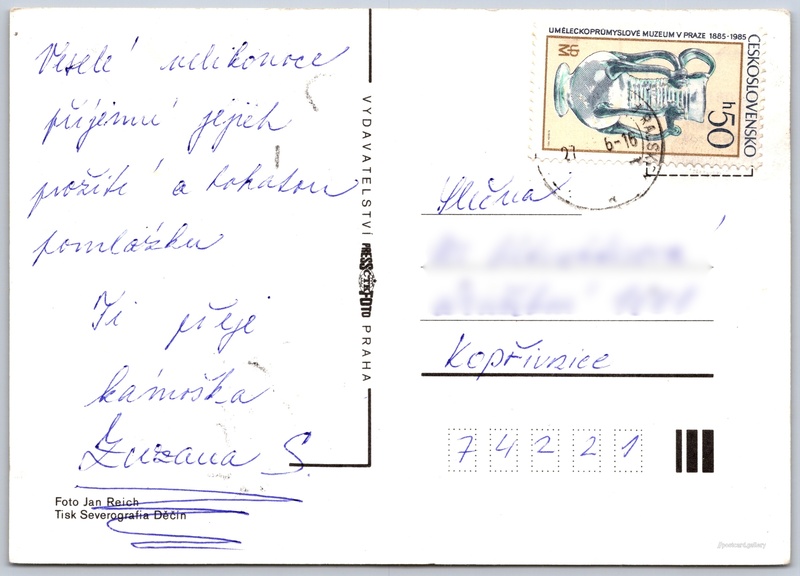 Veselé velikonoce
příjemné jejich
prožití a bohatou
pomlázku
Ti přeje
kámoška
Zuzana S.
Foto Jan Reich
Tisk Severografia Děčín
VYDAVATELSTVÍ PRESSFOTO PRAHA
UMĚLECKOPRŮMYSLOVÉ MUZEUM V PRAZE 1885-1985
ČESKOSLOVENSKO
50 h
27 6-16
Slečna
Kopřivnice
74221